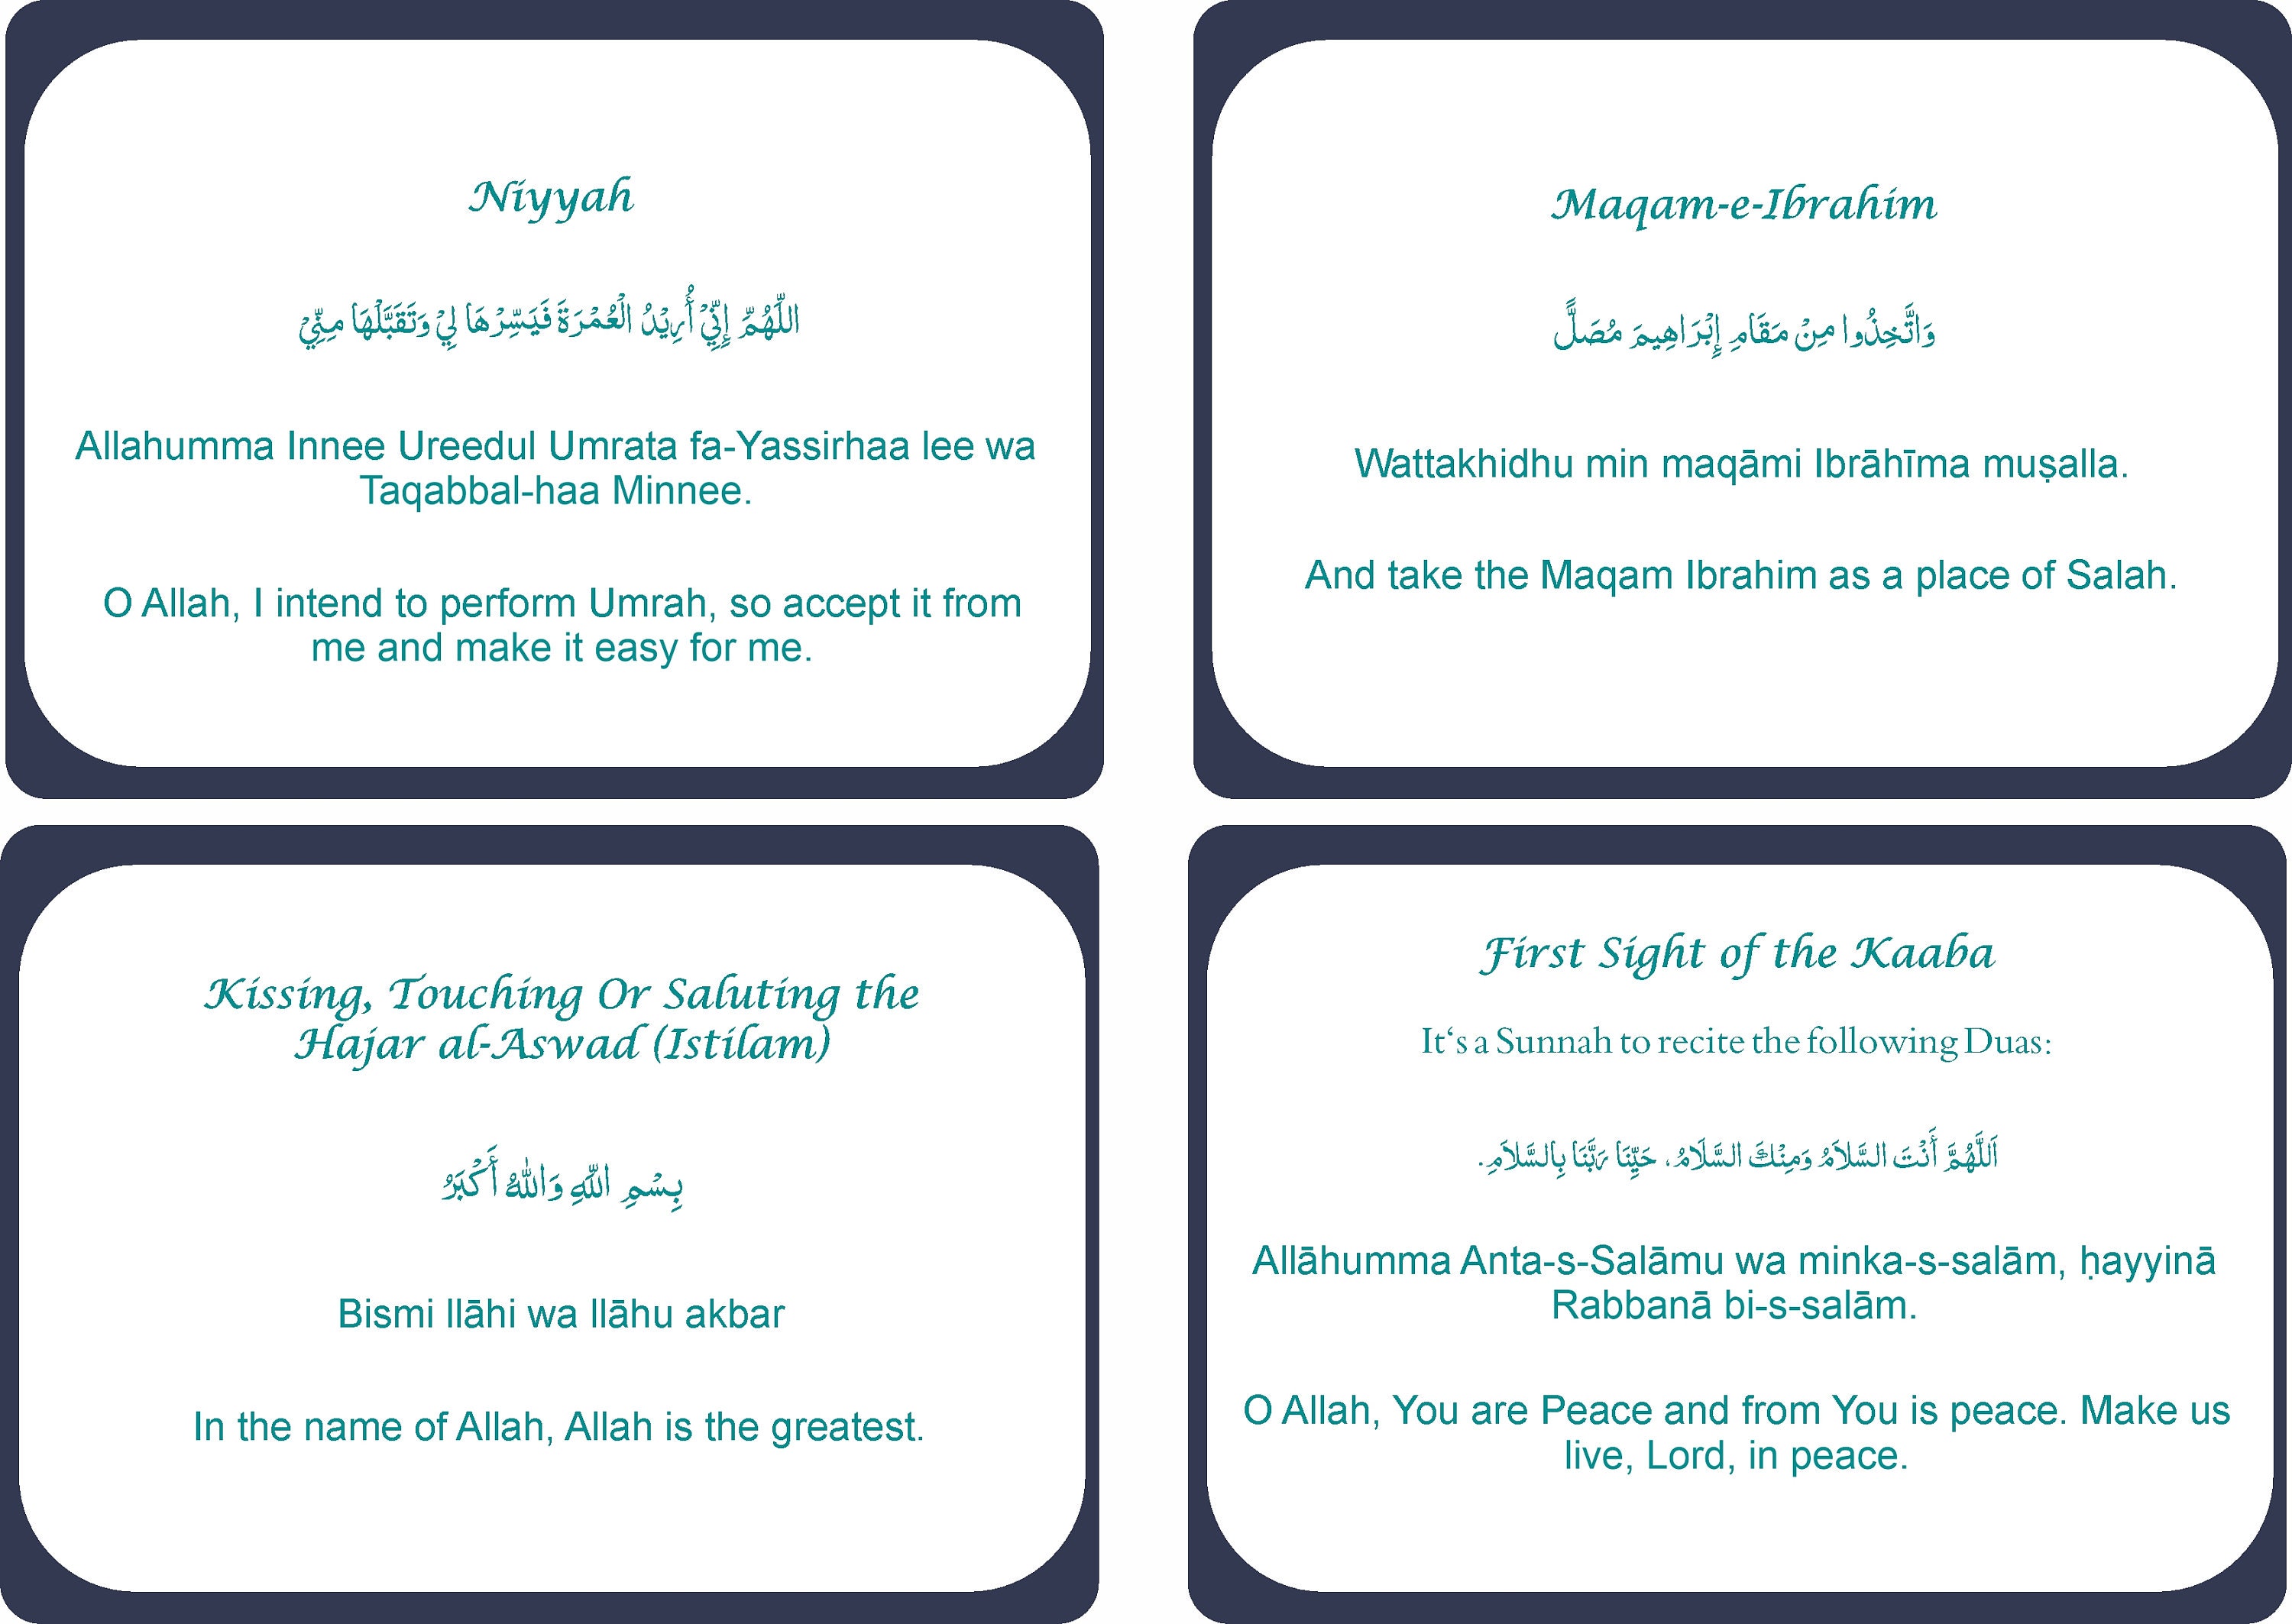 Niyyah
اللّٰهُمَّ إِنِّيْ أُرِيْدُ الْعُمْرَةَ فَيَسِّرْهَا لِيْ وَتَقَبَّلْهَا مِنِّيْ
Allahumma Innee Ureedul Umrata fa-Yassirhaa lee wa
Taqabbal-haa Minnee.
O Allah, I intend to perform Umrah, so accept it from
me and make it easy for me.
Maqam-e-Ibrahim
وَاتَّخِذُوا مِنْ مَقَامِ إِبْرَاهِيمَ مُصَلًّ
Wattakhidhu min maqāmi Ibrāhīma muṣalla.
And take the Maqam Ibrahim as a place of Salah.
Kissing, Touching Or Saluting the
Hajar al-Aswad (Istilam)
بِسْمِ اللّٰهِ وَاللّٰهُ أَكْبَرُ
Bismi llāhi wa llāhu akbar
In the name of Allah, Allah is the greatest.
First Sight of the Kaaba
It‘s a Sunnah to recite the following Duas:
اَللّٰهُمَّ أَنْتَ السَّلاَمُ وَمِنْكَ السَّلاَمُ، حَيِّنَا رَبَّنَا بِالسَّلاَمِ.
Allāhumma Anta-s-Salāmu wa minka-s-salām, ḥayyinā
Rabbanā bi-s-salām.
O Allah, You are Peace and from You is peace. Make us
live, Lord, in peace.